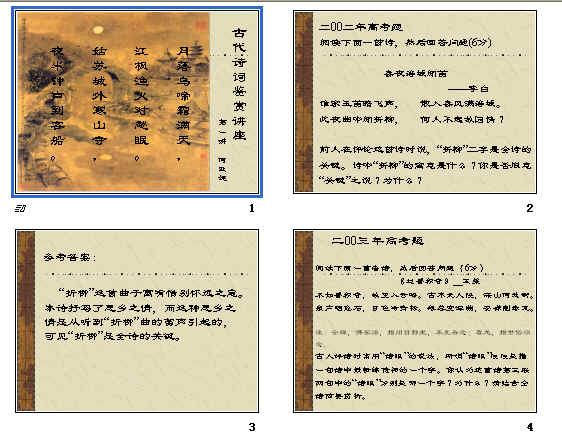 古代诗词鉴赏讲座
第一讲
月落乌啼霜满天，
江枫渔火对愁眠。
姑苏城外寒山寺，
夜半钟声到客船。
1
二00二年高考题
阅读下面一首诗，然后回答问题(6分)
春夜洛城闻笛
——李白
谁家玉笛暗飞声， 散入春风满洛城。
此夜曲中闻折柳， 何人不起故园情？
前人在评论这首诗时说，“折柳”二字是全诗的
关键。诗中“折柳”的寓意是什么？你是否同意
“关键”之说？为什么？
2
参考答案：
“折柳”这首曲子寓有惜别怀远之意。
本诗抒写了思乡之情，而这种思乡之
情是从听到“折柳”曲的笛声引起的，
可见“折柳”是全诗的关键。
3
二00三年高考题
阅读下面一首唐诗，然后回答问题（6分）
《过香积寺》 王维
不知香积寺，数里入云峰。古木无人径，深山何处钟。
泉声咽危石，日色冷青松。薄暮空潭曲，安禅制毒龙。
古人评诗时常用“诗眼”的说法，所谓“诗眼”往往是指
一句诗中最精练传神的一个字。你认为这首诗第三联
两句中的“诗眼”分别是哪一个字？为什么？请结合全
诗简要赏析。
4